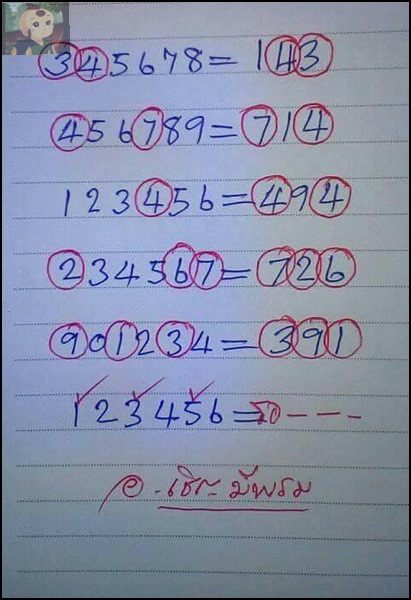 345678 = 143
456789 = 714
123456 = 494
234567 = 726
901234 = 391
123456 = รอ - - -